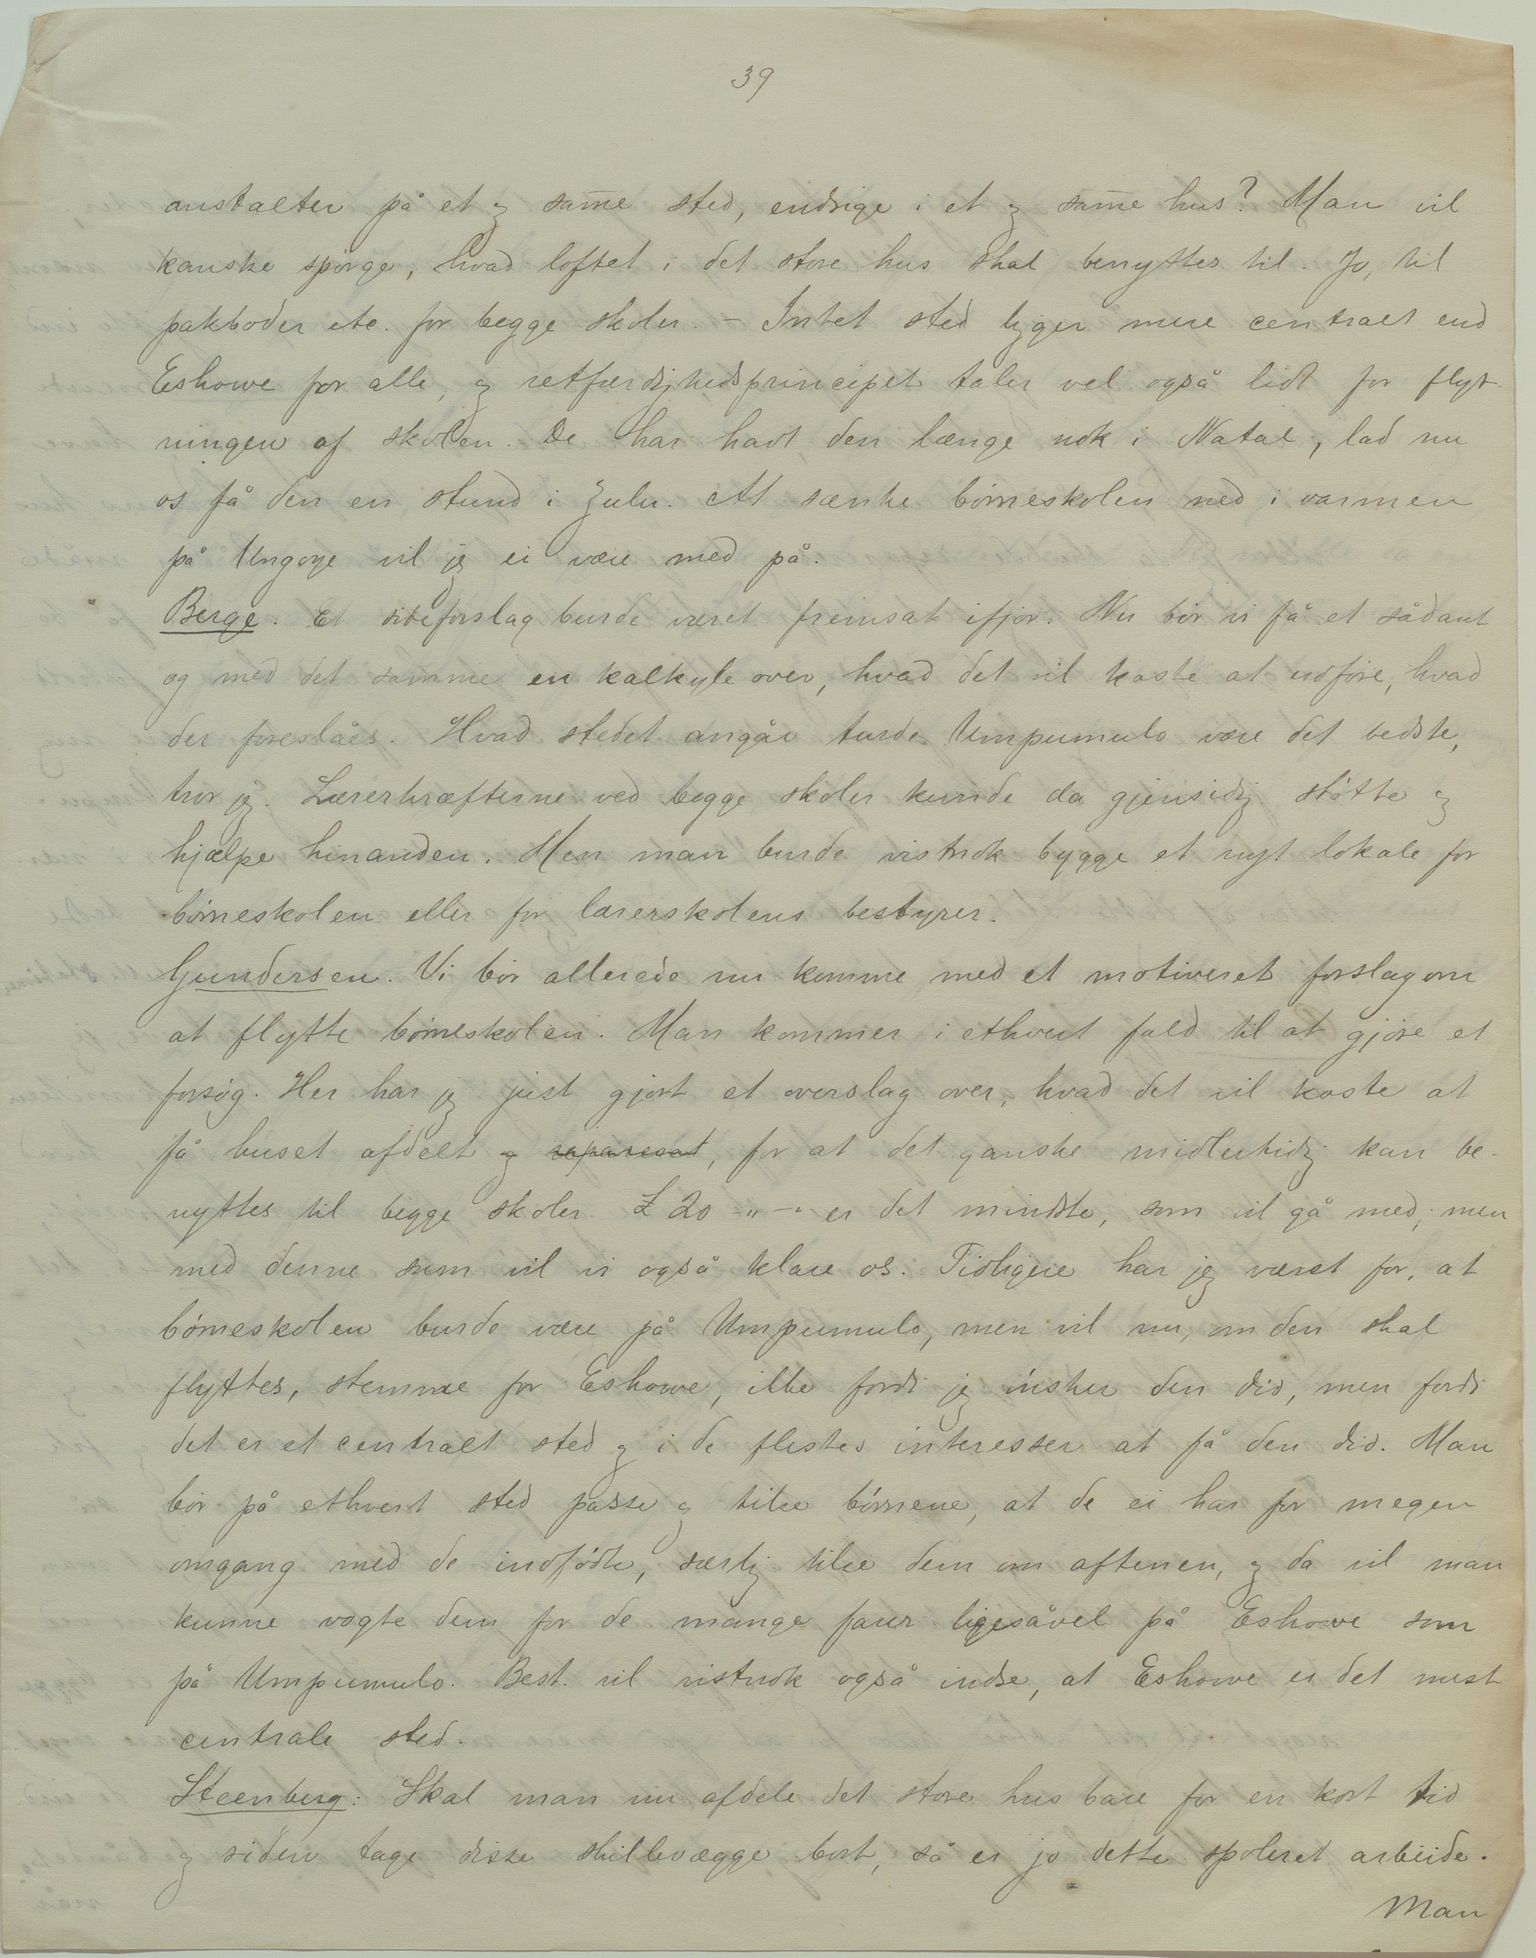 39
anstalter på et og sam̄e sted, endsige i et og sam̄e hus? Man vil
kanske spørge, hvad loftet i det store hus skal benyttes til. Jo, til
pakboder etc. for begge skoler. – Intet sted ligger mere centralt end
Eshowe for alle, og retfærdighedsprincipet taler vel også lidt for flyt-
ningen af skolen. De har havt den længe nok i Natal, lad nu
os få den en stund i Zulu. At sænke børneskolen ned i varmen
på Ungoye vil jeg ei være med på.
Berge. Et forslag burde været fremsat ifjor. Nu bør vi få et sådant
og med det samme en kalkyle over, hvad det vil koste at udføre, hvad
der foreslåes. Hvad stedet angår turde Umpumulo være det bedste,
tror jeg. Lærerkræfterne ved begge skoler kunde da gjensidig støtte og
hjælpe hinanden. Men man burde vistnok bygge et nyt lokale for
børneskolen eller for lærerskolens bestyrer.
Gundersen. Vi bør allerede nu komme med et motiveret forslag om
at flytte børneskolen. Man kommer i ethvert fald til at gjøre et
forsøg. Her har jeg just gjort et overslag over, hvad det vil koste at
få huset afdelt og reparesat, for at det ganske midlertidig kan be-
nyttes til begge skoler. £ 20 -"-" er det mindste, som vil gå med; men
med denne sum vil vi også klare os. Tidligere har jeg været for, at
børneskolen burde være på Umpumulo, men vil nu, om den skal
flyttes, stemme for Eshowe, ikke fordi jeg ønsker den did, men fordi
det er et centralt sted og i de flestes interesser at få den did. Man
bør på ethvert sted passe og tilse børnene, at de ei har for megen
omgang med de indfødte, særlig tilse dem om aftenen, og da vil man
kunne vogte dem for de mange farer ligesåvel på Eshowe som
på Umpumulo. Best. vil vistnok også indse, at Eshowe er det mest
centrale sted.
Steenberg: Skal man nu afdele det store hus bare for en kort tid
og siden tage disse skillevægge bort, så er jo dette spoleret arbeide.
Man